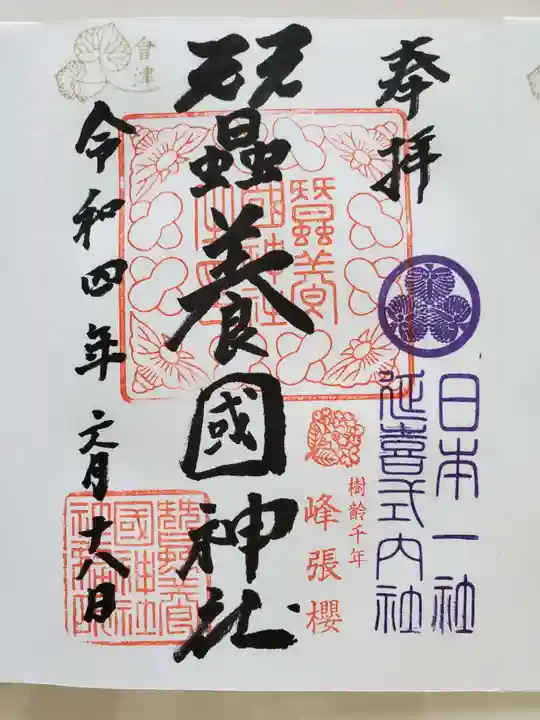 奉拝
日本一社
延喜式内社
樹齢千年
峰張櫻
蠶養國神社
蠶養
國神社
會津
令和四年六月十八日